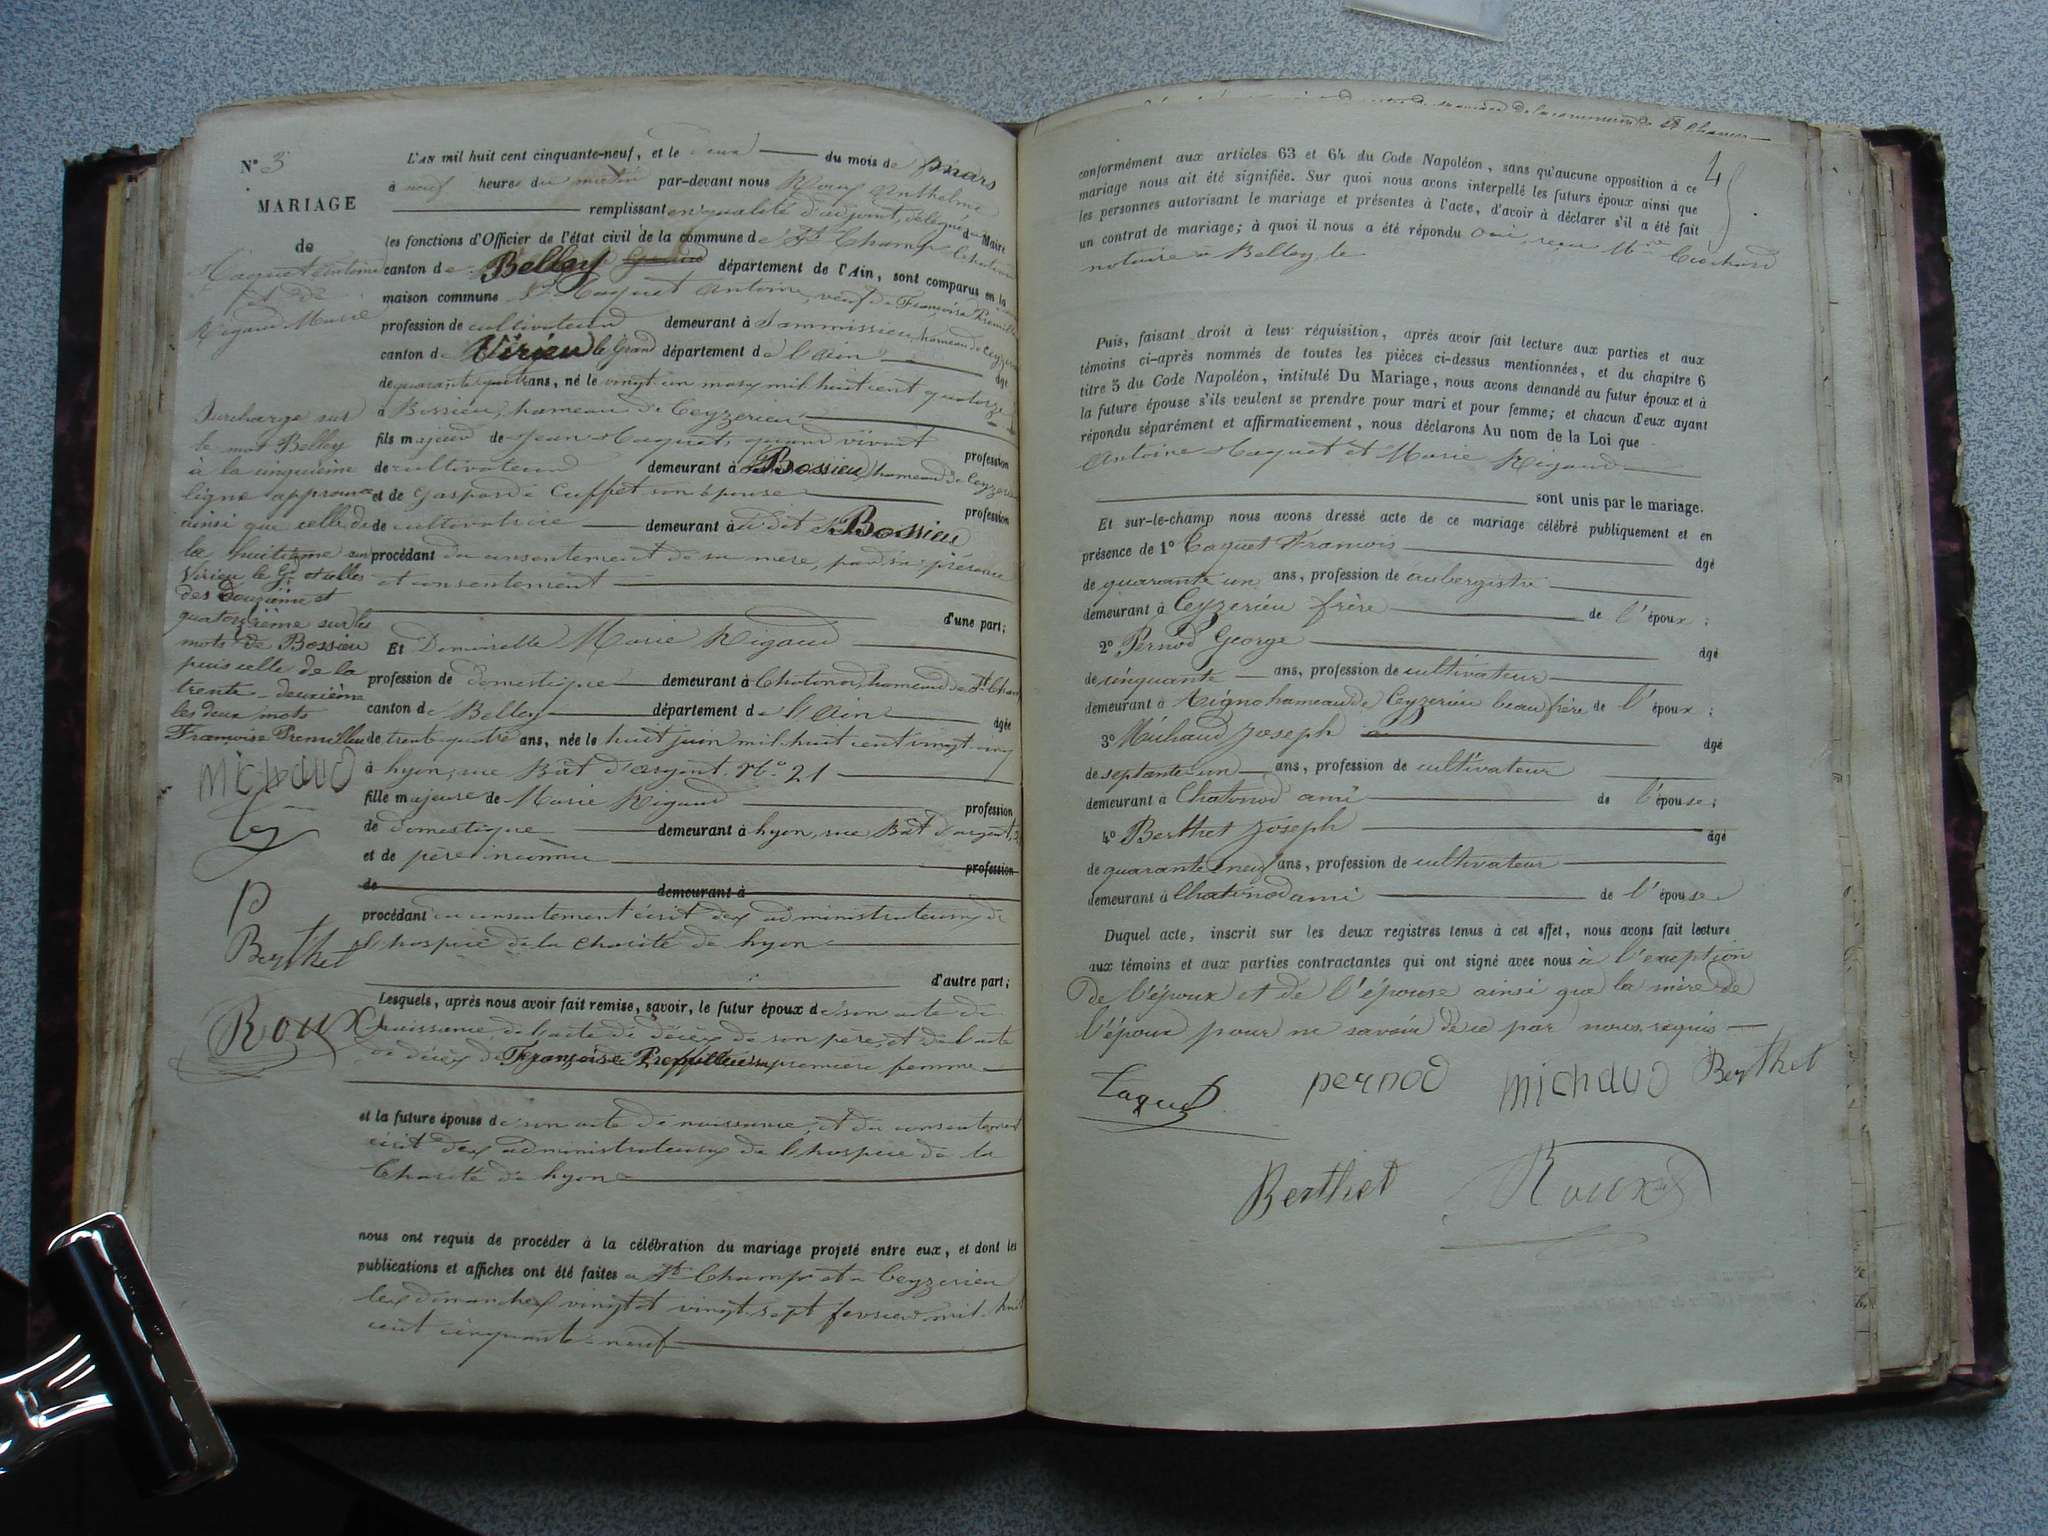 N° 3
MARIAGE
de
Taquet Antoine
et de
Rigaud Marie
Surcharge sur
le mot Belley
à la cinquième
ligne approuvée
ainsi que celle de
la huitième sur
Virieu le Gd et celles
des douzième et
quatorzième sur les
mots de Bossieu
puis celle de la
trente-deuxième
les deux mots
Françoise Premillieu
michaud
P
Berthet
Roux
L'AN mil huit cent cinquante-neuf, et le deux du mois de mars
à neuf heures du matin par-devant nous Roux Anthelme
remplissant en qualité d'adjoint, délégué du Maire
les fonctions d'Officier de l'état civil de la commune de St Champ Chatonod
canton de Belley département de l'Ain, sont comparus en la
maison commune Sr Taquet Antoine, veuf de Françoise Premillieu
profession de cultivateur demeurant à Sammissieu, hameau de Ceyzerieu
canton de Virieu le Grand département de l'Ain âgé
de quarante quatre ans, né le vingt un mars mil huit cent quatorze
à Bossieu, hameau de Ceyzerieu
fils majeur de Jean Taquet, quand vivait profession
de cultivateur demeurant à Bossieu, hameau de Ceyzerieu
et de Gasparde Cuffet son épouse profession
de cultivatrice demeurant à dit Bossieu
procédant du consentement de sa mère, par sa présence
et consentement
d'une part;
Et Demoiselle Marie Rigaud
profession de domestique demeurant à Chatonod, hameau de St Champ
canton de Belley département de l'Ain âgée
de trente quatre ans, née le huit juin mil huit cent vingt cinq
à Lyon, rue Bât d'argent N° 21
fille majeure de Marie Rigaud profession
de domestique demeurant à Lyon, rue Bât d'argent, 21
et de père inconnu profession
de demeurant à
procédant du consentement écrit des administrateurs de
l'hospice de la Charité de Lyon
d'autre part;
Lesquels, après nous avoir fait remise, savoir, le futur époux de son acte de
naissance, de l'acte de décès de son père, et de l'acte
de décès de Françoise Premillieu sa première femme
et la future épouse de son acte de naissance, et du consentement
écrit des administrateurs de l'hospice de la
Charité de Lyon
nous ont requis de procéder à la célébration du mariage projeté entre eux, et dont les
publications et affiches ont été faites à St Champ et à Ceyzerieu
les dimanches vingt et vingt-sept février mil huit
cent cinquante-neuf
de la commune de St Champ
4
conformément aux articles 63 et 64 du Code Napoléon, sans qu'aucune opposition à ce
mariage nous ait été signifiée. Sur quoi nous avons interpellé les futurs époux ainsi que
les personnes autorisant le mariage et présentes à l'acte, d'avoir à déclarer s'il a été fait
un contrat de mariage; à quoi il nous a été répondu oui reçu Me Cochard
notaire à Belley, le
Puis, faisant droit à leur réquisition, après avoir fait lecture aux parties et aux
témoins ci-après nommés de toutes les pièces ci-dessus mentionnées, et du chapitre 6
titre 5 du Code Napoléon, intitulé Du Mariage, nous avons demandé au futur époux et à
la future épouse s'ils veulent se prendre pour mari et pour femme; et chacun d'eux ayant
répondu séparément et affirmativement, nous déclarons Au nom de la Loi que
Antoine Taquet et Marie Rigaud
sont unis par le mariage.
Et sur-le-champ nous avons dressé acte de ce mariage célébré publiquement et en
présence de 1° Taquet Francois âgé
de quarante un ans, profession de aubergiste
demeurant à Ceyzerieu frère de l'époux;
2° Pernod George âgé
de cinquante ans, profession de cultivateur
demeurant à Aigno hameau de Ceyzerieu beau frère de l'époux;
3° Michaud Joseph âgé
de septante-un ans, profession de cultivateur
demeurant à Chatonod ami de l'épouse;
4° Berthet Joseph âgé
de quarante neuf ans, profession de cultivateur
demeurant à Chatonod ami de l'épouse
Duquel acte, inscrit sur les deux registres tenus à cet effet, nous avons fait lecture
aux témoins et aux parties contractantes qui ont signé avec nous à l'exception
de l'époux et de l'épouse ainsi que la mère de
l'époux pour ne savoir de ce par nous requis
Taquet pernod michaud Berthet
Berthet Roux